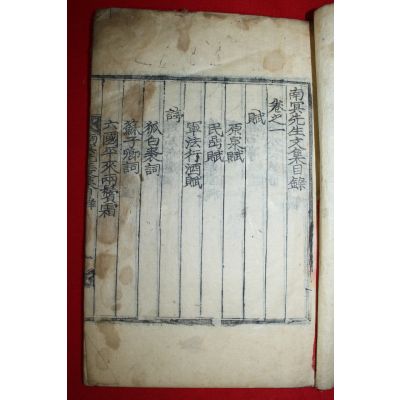 南冥先生文集目錄
卷之一
賦
原泉賦
民嵒賦
軍法行酒賦
詩
狐白裘詞
蘇子卿詞
六國平來兩鬢霜